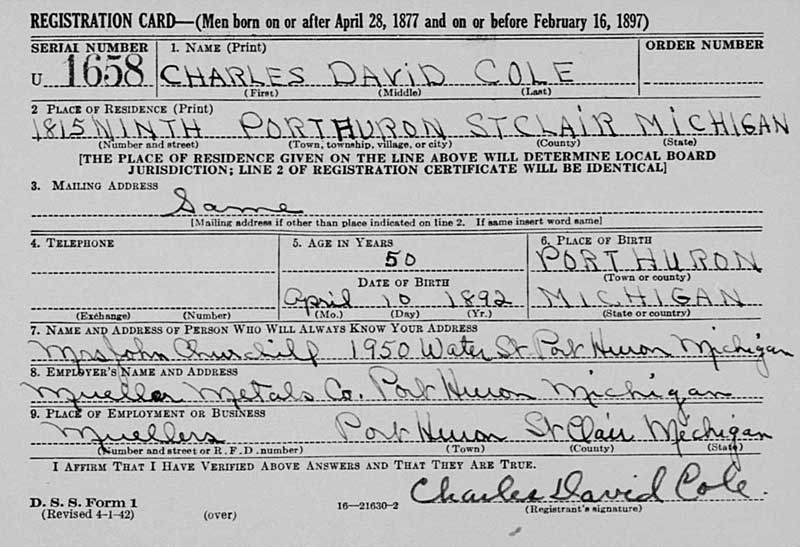 REGISTRATION CARD—(Men born on or after April 28, 1877 and on or before February 16, 1897)
SERIAL NUMBER 1. NAME (Print) ORDER NUMBER
U 1658 CHARLES DAVID COLE
(First) (Middle) (Last)
2 PLACE OF RESIDENCE (Print)
1815 NINTH PORT HURON ST CLAIR MICHIGAN
(Number and street) (Town, township, village, or city) (County) (State)
[THE PLACE OF RESIDENCE GIVEN ON THE LINE ABOVE WILL DETERMINE LOCAL BOARD
JURISDICTION; LINE 2 OF REGISTRATION CERTIFICATE WILL BE IDENTICAL]
3. MAILING ADDRESS
Same
[Mailing address if other than place indicated on line 2. If same insert word same]
4. TELEPHONE 5. AGE IN YEARS 6. PLACE OF BIRTH
50 PORT HURON
(Town or county)
DATE OF BIRTH
April 10 1892 MICHIGAN
(Exchange) (Number) (Mo.) (Day) (Yr.) (State or country)
7. NAME AND ADDRESS OF PERSON WHO WILL ALWAYS KNOW YOUR ADDRESS
Mrs John Churchill 1950 Water St Port Huron Michigan
8. EMPLOYER'S NAME AND ADDRESS
Mueller Metals Co. Port Huron Michigan
9. PLACE OF EMPLOYMENT OR BUSINESS
Muellers Port Huron St Clair Michigan
(Number and street or R. F. D. number) (Town) (County) (State)
I AFFIRM THAT I HAVE VERIFIED ABOVE ANSWERS AND THAT THEY ARE TRUE.
Charles David Cole.
D. S. S. Form 1
(Revised 4-1-42) (over) 16—21630-2 (Registrant's signature)